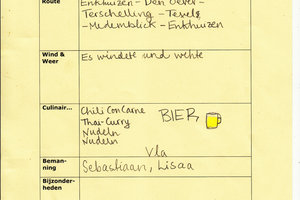 Route
Enkhuizen - Den Oever -
Terschelling - Texel -
- Medemblick - Enkhuizen
Wind &
Weer
Es windete und wehte
Culinair...
Chili Con Carne
Thai-Curry
Nudeln
Nudeln
BIER
Vla
Beman-
ning
Sebastiaan, Lisaa
Bijzonder-
heden